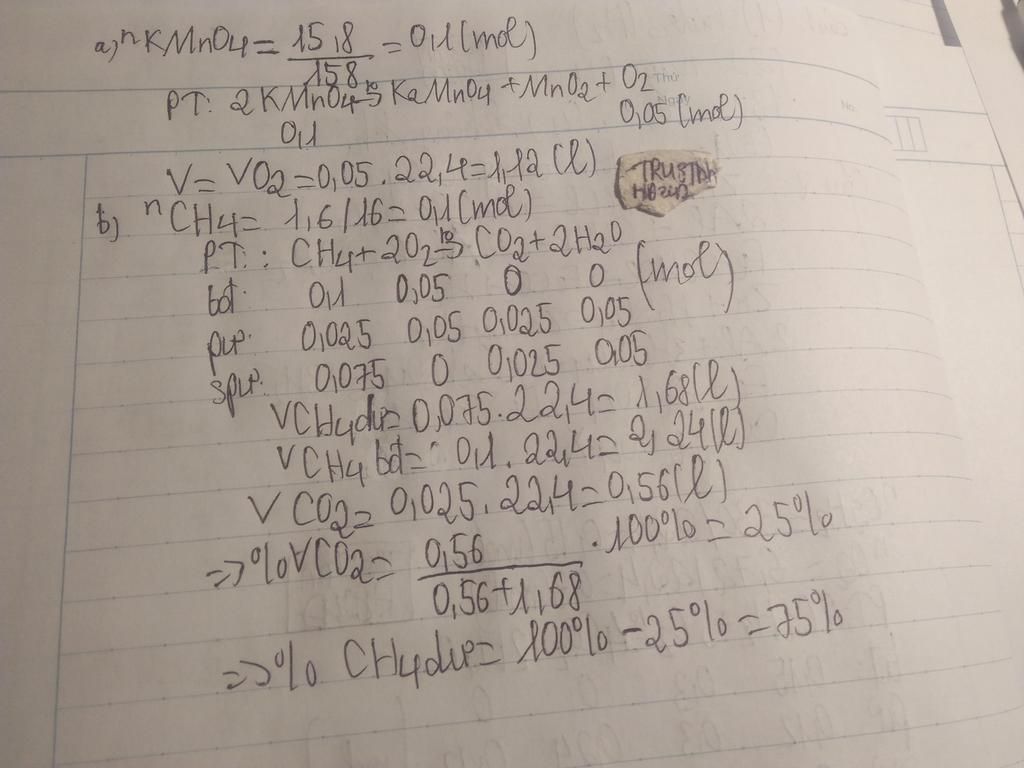 a) nKMnO4 = 15,8/158 = 0,1 (mol)
PT: 2KMnO4 t° → K2MnO4 + MnO2 + O2
0,1 0,05 (mol)
V = VO2 = 0,05 . 22,4 = 1,12 (l)
b) nCH4 = 1,6/16 = 0,1 (mol)
PT: : CH4 + 2O2 t° → CO2 + 2H2O
bđ: 0,1 0,05 0 0 (mol)
pư: 0,025 0,05 0,025 0,05
spư: 0,075 0 0,025 0,05
VCH4 dư = 0,075 . 22,4 = 1,68 (l)
VCH4 bđ = 0,1 . 22,4 = 2,24 (l)
VCO2 = 0,025 . 22,4 = 0,56 (l)
=> %VCO2 = 0,56/0,56+1,68 . 100% = 25%
=> % CH4 dư = 100% - 25% = 75%